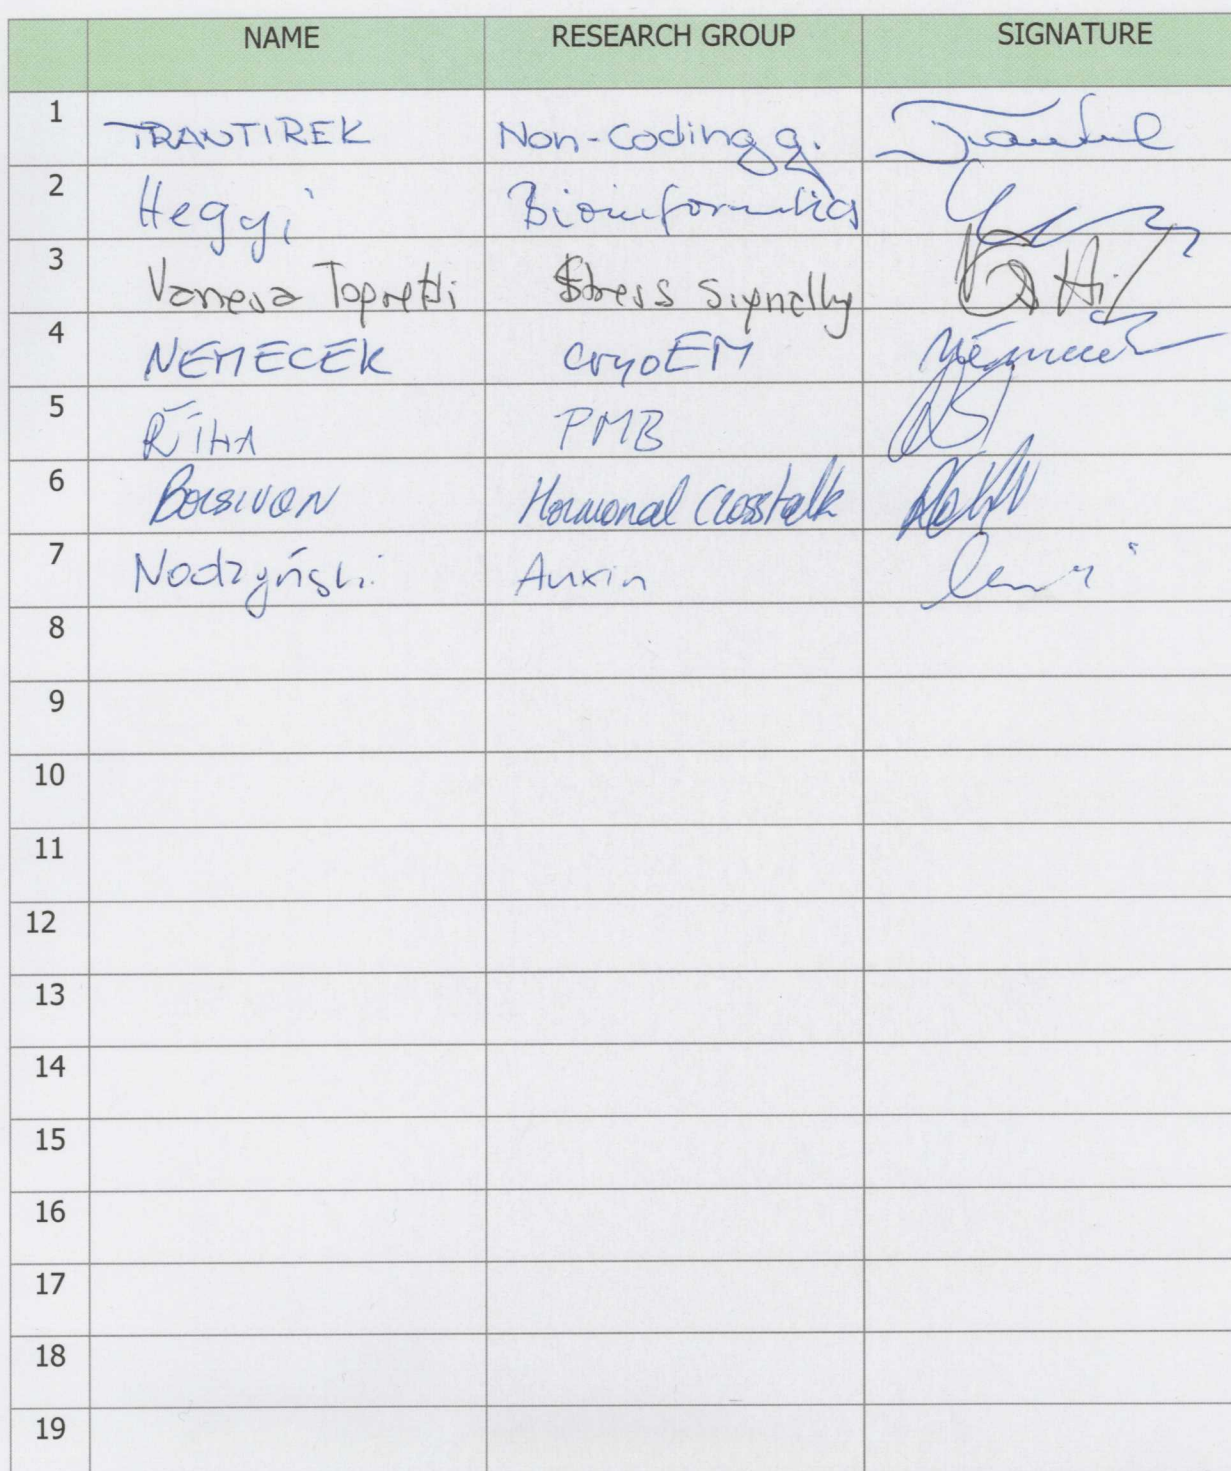 NAME RESEARCH GROUP SIGNATURE
1 TRANTIREK Non-coding g.
2 Hegyi Bioinformatics
3 Vanesa Stress
4 NEMECEK cryoEM Němeček
5 ŘÍHA PMB
6 Hormonal Crosstalk
7 Nodzyński Auxin
8
9
10
11
12
13
14
15
16
17
18
19